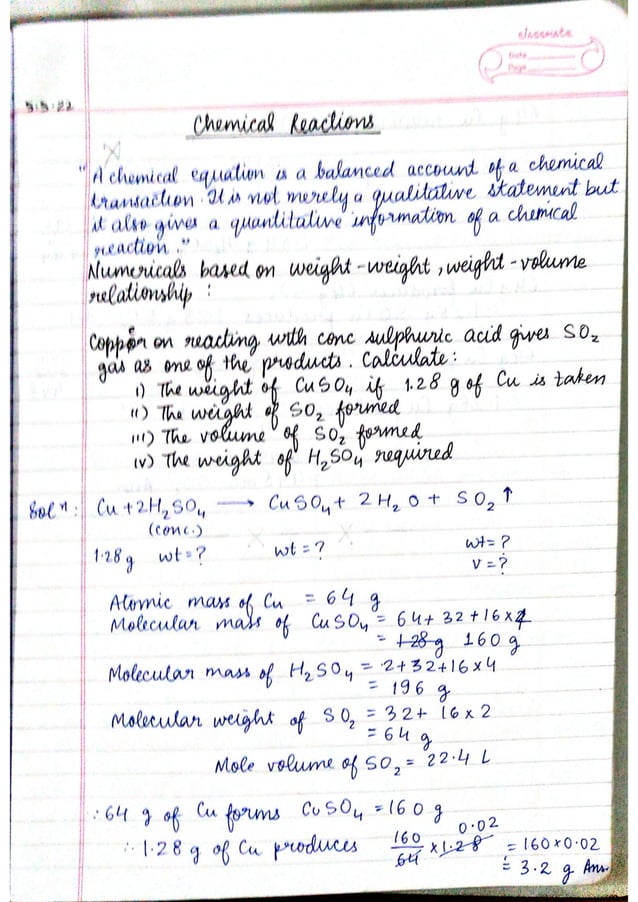 classmate
Date
Page
5.5.22
Chemical Reactions
"A chemical equation is a balanced account of a chemical
transaction. It is not merely a qualitative statement but
it also gives a quantitative information of a chemical
reaction."
Numericals based on weight-weight, weight-volume
relationship :
Copper on reacting with conc sulphuric acid gives SO₂
gas as one of the products. Calculate :
i) The weight of CuSO₄ if 1.28 g of Cu is taken
ii) The weight of SO₂ formed
iii) The volume of SO₂ formed
iv) The weight of H₂SO₄ required
Solⁿ : Cu + 2H₂SO₄ ⟶ CuSO₄ + 2H₂O + SO₂↑
(conc.)
1.28g wt=? wt = ? wt = ?
v = ?
Atomic mass of Cu = 64 g
Molecular mass of CuSO₄ = 64 + 32 + 16 x 4
= 128 g 160 g
Molecular mass of H₂SO₄ = 2+32+16 x 4
= 196 g
Molecular weight of SO₂ = 32+ 16 x 2
= 64 g
Mole volume of SO₂ = 22.4 L
∵ 64 g of Cu forms CuSO₄ = 160 g
∴ 1.28 g of Cu produces 160/64 x 1.28 0.02 = 160 x 0.02
= 3.2 g Ans.